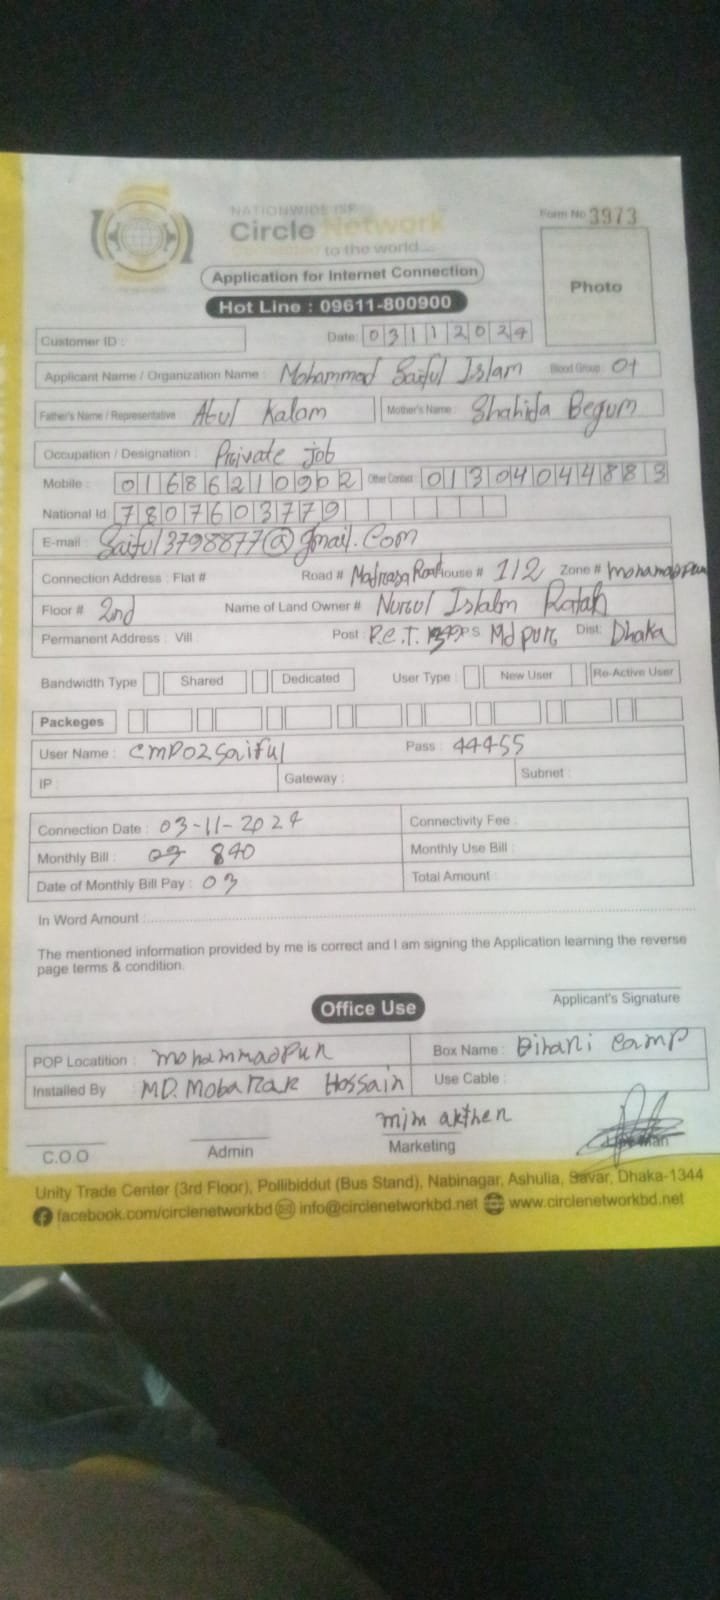 NATIONWIDE ISP
Circle Network
Connected to the world...
Form No 3973
Photo
Application for Internet Connection
Hot Line : 09611-800900
Customer ID :
Date: 03112024
Applicant Name / Organization Name : Mohammed Saiful Islam Blood Group: O+
Father's Name / Representative Abul Kalam Mother's Name : Shahida Begum
Occupation / Designation : Private job
Mobile : 01686210902 Other Contact 01304044883
National Id 7807603779
E-mail : Saiful3798877@gmail.Com
Connection Address : Flat # Road # Madrasa Road House # 1/2 Zone #
Floor # 2nd Name of Land Owner #
Permanent Address : Vill : Post : P.C.T. PS Md pur Dist: Dhaka
Bandwidth Type Shared Dedicated User Type : New User Re-Active User
Packeges
User Name : CMP02Saiful Pass : 44455
IP : Gateway : Subnet :
Connection Date : 03-11-2024 Connectivity Fee :
Monthly Bill : 840 Monthly Use Bill :
Date of Monthly Bill Pay : 03 Total Amount :
In Word Amount :
The mentioned information provided by me is correct and I am signing the Application learning the reverse
page terms & condition.
Applicant's Signature
Office Use
POP Locatition : mohammadpur Box Name : Bihari camp
Installed By MD. Mobarak Hossain Use Cable :
mim akther
C.O.O Admin Marketing
Unity Trade Center (3rd Floor), Pollibiddut (Bus Stand), Nabinagar, Ashulia, Savar, Dhaka-1344
facebook.com/circlenetworkbd info@circlenetworkbd.net www.circlenetworkbd.net